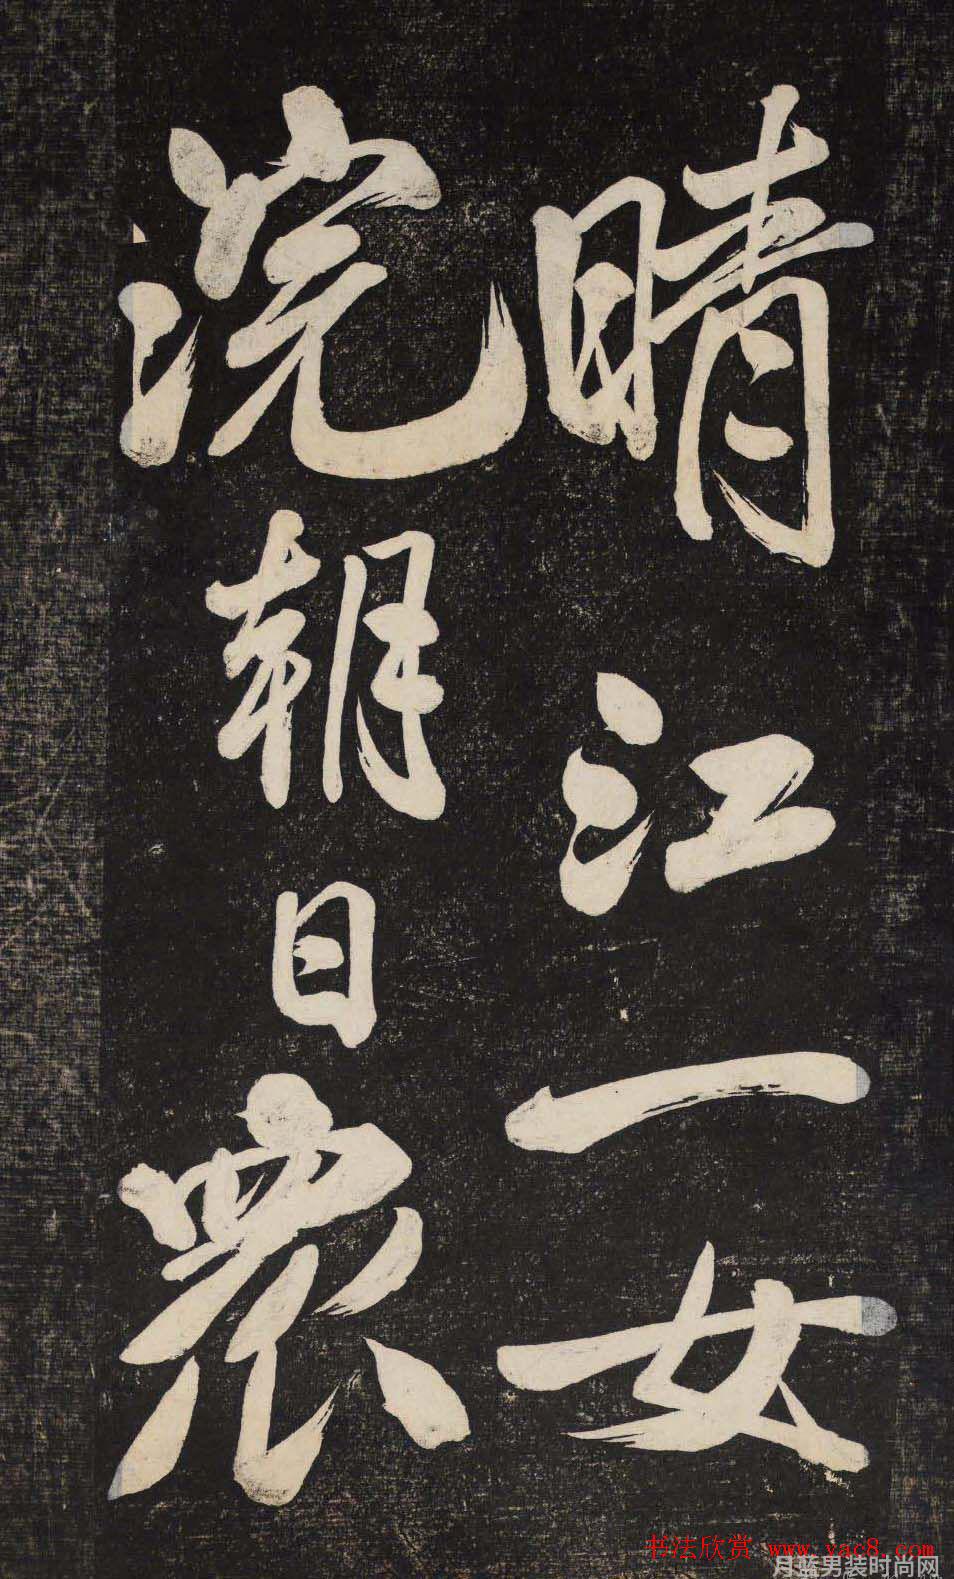 晴江一女
浣朝日衆
书法欣赏 www.yac8.com
月蓝男装时尚网